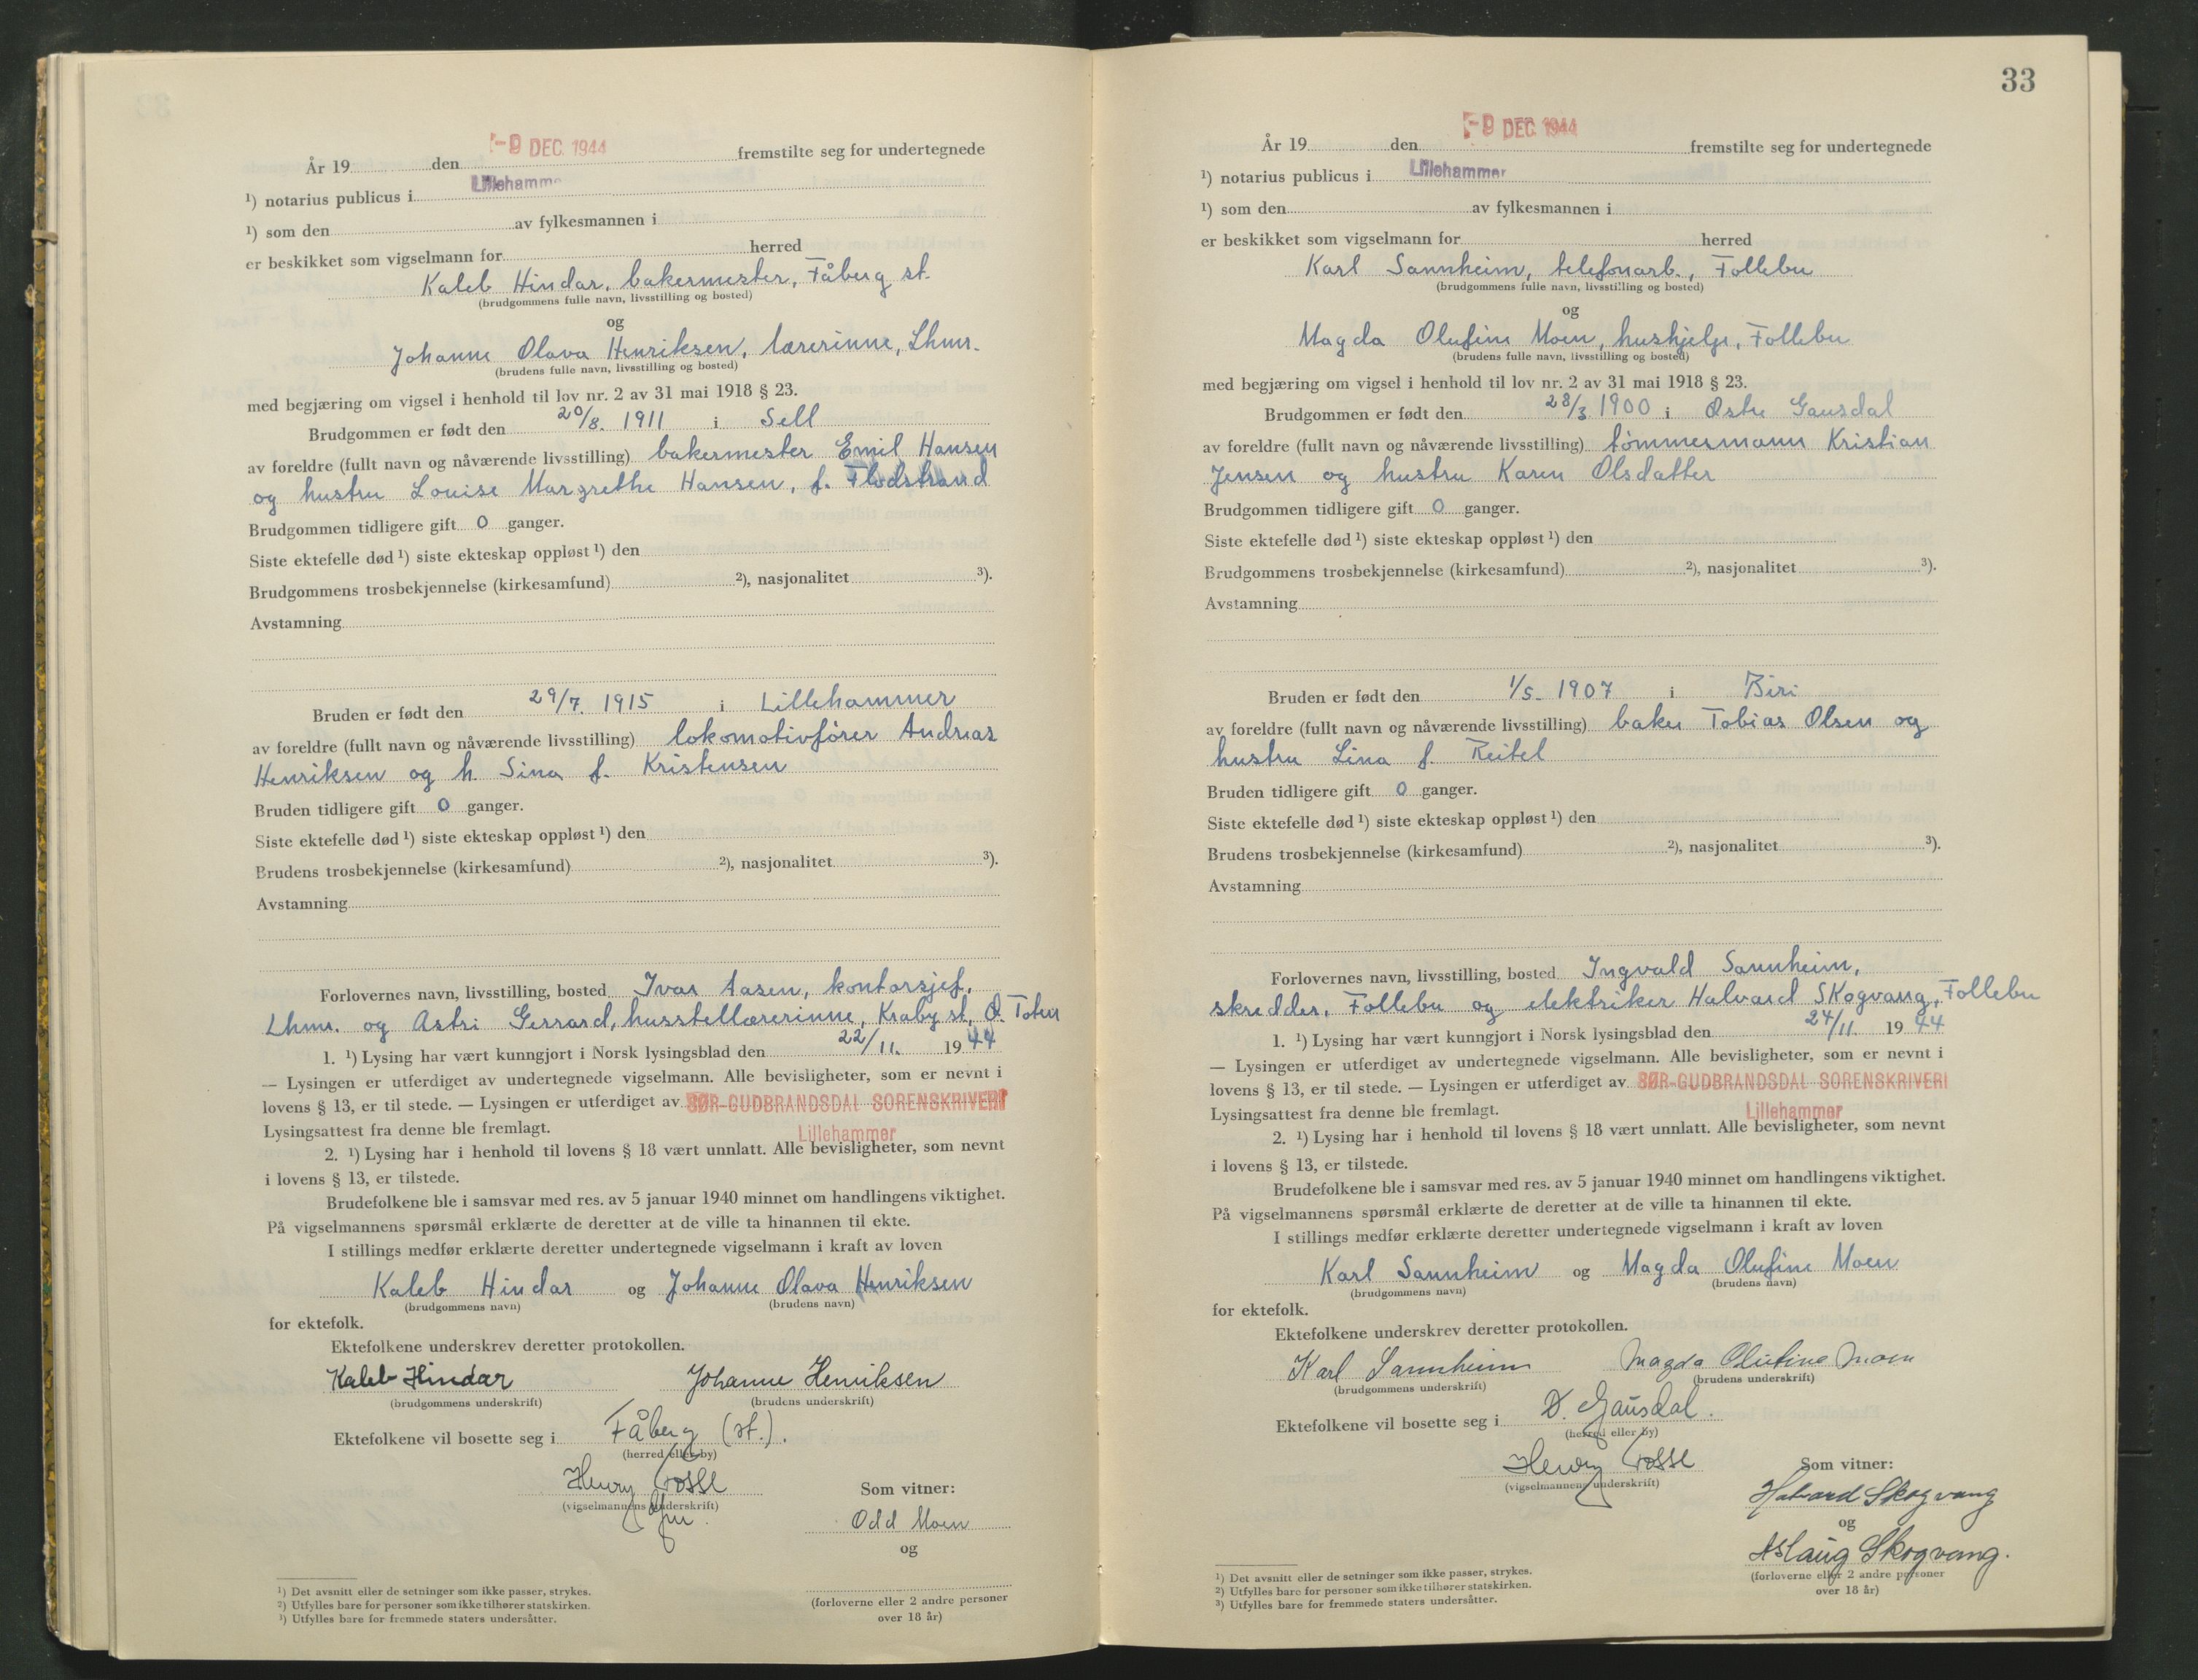 År 19 den -9 DEC. 1944 fremstilte seg for undertegnede
¹) notarius publicus i Lillehamme
¹) som den av fylkesmannen i
er beskikket som vigselmann for herred
Kaleb Hindar, bakermester, Fåberg st.
(brudgommens fulle navn, livsstilling og bosted)
og
Johanne Olava Henriksen, lærerinne, Lhmr.
(brudens fulle navn, livsstilling og bosted)
med begjæring om vigsel i henhold til lov nr. 2 av 31 mai 1918 § 23.
Brudgommen er født den 20/8. 1911 i Sell
av foreldre (fullt navn og nåværende livsstilling) bakermester Emil Hansen
og hustru Louise Margrethe Hansen, f. Flodstrand
Brudgommen tidligere gift 0 ganger.
Siste ektefelle død ¹) siste ekteskap oppløst ¹) den
Brudgommens trosbekjennelse (kirkesamfund) ²), nasjonalitet ³).
Avstamning
Bruden er født den 29/7. 1915 i Lillehammer
av foreldre (fullt navn og nåværende livsstilling) lokomotivfører Andreas
Henriksen og h. Sina f. Kristensen
Bruden tidligere gift 0 ganger.
Siste ektefelle død ¹) siste ekteskap oppløst ¹) den
Brudens trosbekjennelse (kirkesamfund) ²), nasjonalitet ³).
Avstamning
Forlovernes navn, livsstilling, bosted Ivar Aasen, kontorsjef,
Lhmr. og Astri Gerrard, husstellærerinne, Kraby st., Ø. Toten
1. ¹) Lysing har vært kunngjort i Norsk lysingsblad den 22/11. 1944
— Lysingen er utferdiget av undertegnede vigselmann. Alle bevisligheter, som er nevnt i
lovens § 13, er til stede. — Lysingen er utferdiget av SØR-GUDBRANDSDAL SORENSKRIVERI
Lysingsattest fra denne ble fremlagt. Lillehammer
2. ¹) Lysing har i henhold til lovens § 18 vært unnlatt. Alle bevisligheter, som nevnt
i lovens § 13, er tilstede.
Brudefolkene ble i samsvar med res. av 5 januar 1940 minnet om handlingens viktighet.
På vigselmannens spørsmål erklærte de deretter at de ville ta hinannen til ekte.
I stillings medfør erklærte deretter undertegnede vigselmann i kraft av loven
Kaleb Hindar og Johanne Olava Henriksen
(brudgommens navn) (brudens navn)
for ektefolk.
Ektefolkene underskrev deretter protokollen.
Kaleb Hindar Johanne Henriksen
(brudgommens underskrift) (brudens underskrift)
Ektefolkene vil bosette seg i Fåberg (st.).
(herred eller by)
Henry Fosse
(vigselmannens underskrift)
Som vitner:
Odd Moen
og
(forloverne eller 2 andre personer
over 18 år)
¹) Det avsnitt eller de setninger som ikke passer, strykes.
²) Utfylles bare for personer som ikke tilhører statskirken.
³) Utfylles bare for fremmede staters undersåtter.
33
År 19 den -9 DEC. 1944 fremstilte seg for undertegnede
¹) notarius publicus i Lillehammer
¹) som den av fylkesmannen i
er beskikket som vigselmann for herred
Karl Sannheim, telefonarb., Follebu
(brudgommens fulle navn, livsstilling og bosted)
og
Magda Olufine Moen, hushjelp, Follebu
(brudens fulle navn, livsstilling og bosted)
med begjæring om vigsel i henhold til lov nr. 2 av 31 mai 1918 § 23.
Brudgommen er født den 28/3 1900 i Østre Gausdal
av foreldre (fullt navn og nåværende livsstilling) tømmermann Kristian
Jensen og hustru Karen Olsdatter
Brudgommen tidligere gift 0 ganger.
Siste ektefelle død ¹) siste ekteskap oppløst ¹) den
Brudgommens trosbekjennelse (kirkesamfund) ²), nasjonalitet ³).
Avstamning
Bruden er født den 1/5. 1907 i Biri
av foreldre (fullt navn og nåværende livsstilling) baker Tobias Olsen og
hustru Lina f. Reitel
Bruden tidligere gift 0 ganger.
Siste ektefelle død ¹) siste ekteskap oppløst ¹) den
Brudens trosbekjennelse (kirkesamfund) ²), nasjonalitet ³).
Avstamning
Forlovernes navn, livsstilling, bosted Ingvald Sannheim,
skredder, Follebu og elektriker Halvard Skogvang, Follebu
1. ¹) Lysing har vært kunngjort i Norsk lysingsblad den 24/11 1944
— Lysingen er utferdiget av undertegnede vigselmann. Alle bevisligheter, som er nevnt i
lovens § 13, er til stede. — Lysingen er utferdiget av SØR-GUDBRANDSDAL SORENSKRIVERI
Lysingsattest fra denne ble fremlagt. Lillehammer
2. ¹) Lysing har i henhold til lovens § 18 vært unnlatt. Alle bevisligheter, som nevnt
i lovens § 13, er tilstede.
Brudefolkene ble i samsvar med res. av 5 januar 1940 minnet om handlingens viktighet.
På vigselmannens spørsmål erklærte de deretter at de ville ta hinannen til ekte.
I stillings medfør erklærte deretter undertegnede vigselmann i kraft av loven
Karl Sannheim og Magda Olufine Moen
(brudgommens navn) (brudens navn)
for ektefolk.
Ektefolkene underskrev deretter protokollen.
Karl Sannheim Magda Olufine Moen
(brudgommens underskrift) (brudens underskrift)
Ektefolkene vil bosette seg i Ø. Gausdal.
(herred eller by)
Henry Fosse
(vigselmannens underskrift)
Som vitner:
Halvard Skogvang
og
Aslaug Skogvang.
(forloverne eller 2 andre personer
over 18 år)
¹) Det avsnitt eller de setninger som ikke passer, strykes.
²) Utfylles bare for personer som ikke tilhører statskirken.
³) Utfylles bare for fremmede staters undersåtter.